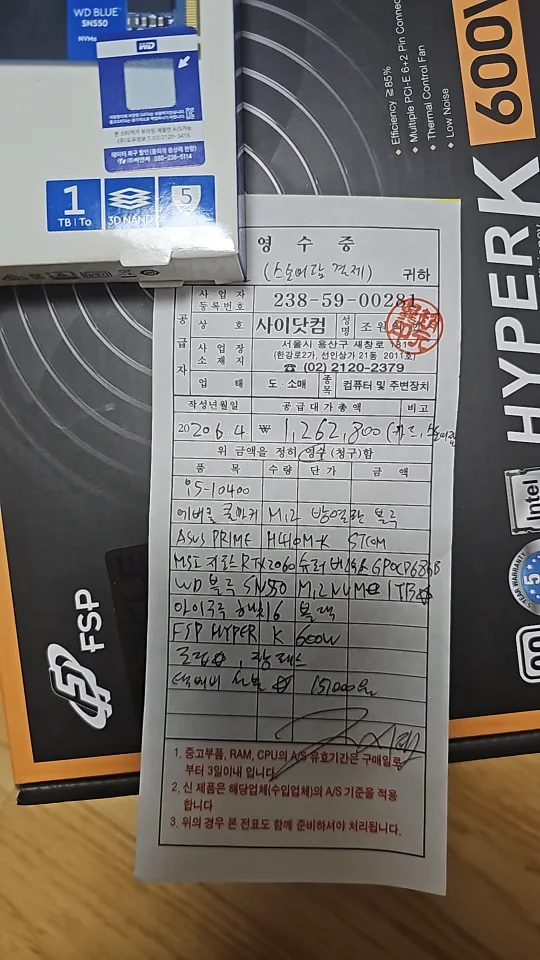 WD BLUE™
SN550
NVMe
WD
본 스티커가 부착된 제품만 A/S가능
데이터 복구 할인(물리적 증상에 한함)
080-236-5114
1
TB | To
3D NAND
5
Efficiency ≧85%
Multiple PCI-E 6+2 Pin Connec
Thermal Control Fan
Low Noise
HYPER K
600W
Intel
5
YEAR WARRANTY
FSP
영 수 증
(스토어팜 결제) 귀하
공급자
사업자 등록번호 238-59-00281
상 호 사이닷컴 성명 조원
사업장 소재지 서울시 용산구 새창로 181
(한강로2가, 선인상가 21동 2011호)
☎ (02) 2120-2379
업 태 도·소매 종목 컴퓨터 및 주변장치
작성년월일 공급대가총액 비고
2020 6. 4 ₩ 1,262,800 (카드, 스토어팜
위 금액을 정히 영수 (청구)함
품 목 수량 단 가 금 액
i5-10400
에버쿨 M.2 방열판 블루
ASUS PRIME H410M-K STCOM
MSI 지포스 RTX 2060 슈퍼 벤투스 GP OC D6 8GB
WD 블루 SN550 M.2 NVMe 1TB
아이구주 블랙
FSP HYPER K 600W
조립
택배비 선불 15,000원
1. 중고부품, RAM, CPU의 A/S 유효기간은 구매일로
부터 3일이내 입니다.
2. 신 제품은 해당업체(수입업체)의 A/S 기준을 적용
합니다
3. 위의 경우 본 전표도 함께 준비하셔야 처리됩니다.